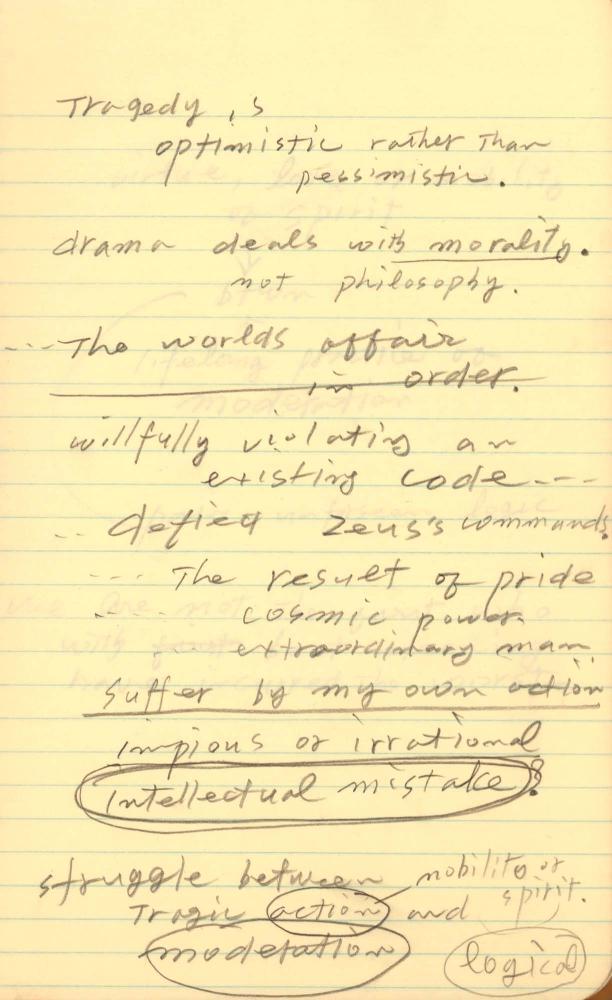 Tragedy is
optimistic rather than
pessimistic.
drama deals with morality.
not philosophy.
--- The worlds affair
in order.
willfully violating an
existing code ---
.. defied Zeus's commands.
--- The result of pride
---- cosmic power
---- extraordinary man
suffer by my own action
impious or irrational
intellectual mistake?
struggle between nobility of
Tragic action and spirit.
moderation logical